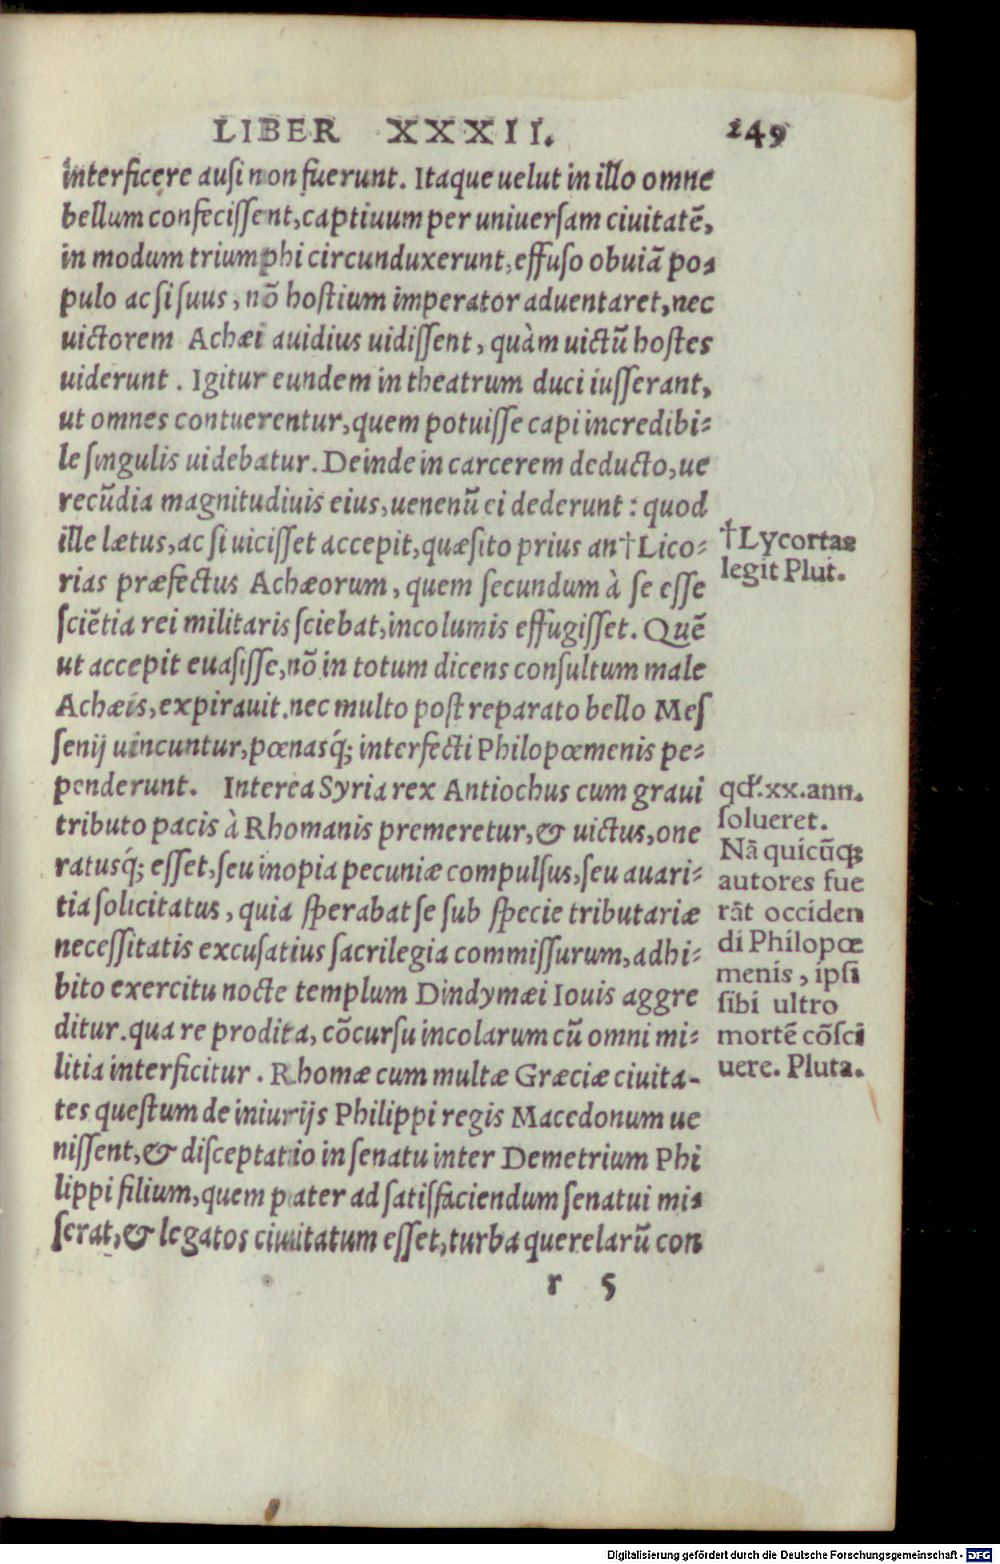 LIBER XXXII. 249
interficere ausi non fuerunt. Itaque uelut in illo omne
bellum confecissent, captiuum per uniuersam ciuitatē,
in modum triumphi circunduxerunt, effuso obuiā po-
pulo ac si suus, nō hostium imperator aduentaret, nec
uictorem Achæi auidius uidissent, quàm uictū hostes
uiderunt. Igitur eundem in theatrum duci iusserant,
ut omnes contuerentur, quem potuisse capi incredibi-
le singulis uidebatur. Deinde in carcerem deducto, ue
recūdia magnitudiuis eius, uenenū ei dederunt: quod
ille lætus, ac si uicisset accepit, quæsito prius an †Lico-
rias præfectus Achæorum, quem secundum à se esse
sciētia rei militaris sciebat, incolumis effugisset. Quē
ut accepit euasisse, nō in totum dicens consultum male
Achæis, expirauit. nec multo post reparato bello Mes
senij uincuntur, pœnasq́; interfecti Philopœmenis pe-
penderunt. Interea Syria rex Antiochus cum graui
tributo pacis à Rhomanis premeretur, & uictus, one
ratusq́; esset, seu inopia pecuniæ compulsus, seu auari-
tia solicitatus, quia sperabat se sub specie tributariæ
necessitatis excusatius sacrilegia commissurum, adhi-
bito exercitu nocte templum Dindymæi Iouis aggre
ditur. qua re prodita, cōcursu incolarum cū omni mi-
litia interficitur. Rhomæ cum multæ Græciæ ciuita-
tes questum de iniurijs Philippi regis Macedonum ue
nissent, & disceptatio in senatu inter Demetrium Phi
lippi filium, quem pater ad satisfaciendum senatui mi-
serat, & legatos ciuitatum esset, turba querelarū con
r 5
†Lycortas
legit Plut.
qd'.xx.ann.
solueret.
Nā quicūq;
autores fue
rāt occiden
di Philopœ
menis, ipsi
sibi ultro
mortē cōsci
uere. Pluta.
Digitalisierung gefördert durch die Deutsche Forschungsgemeinschaft - DFG